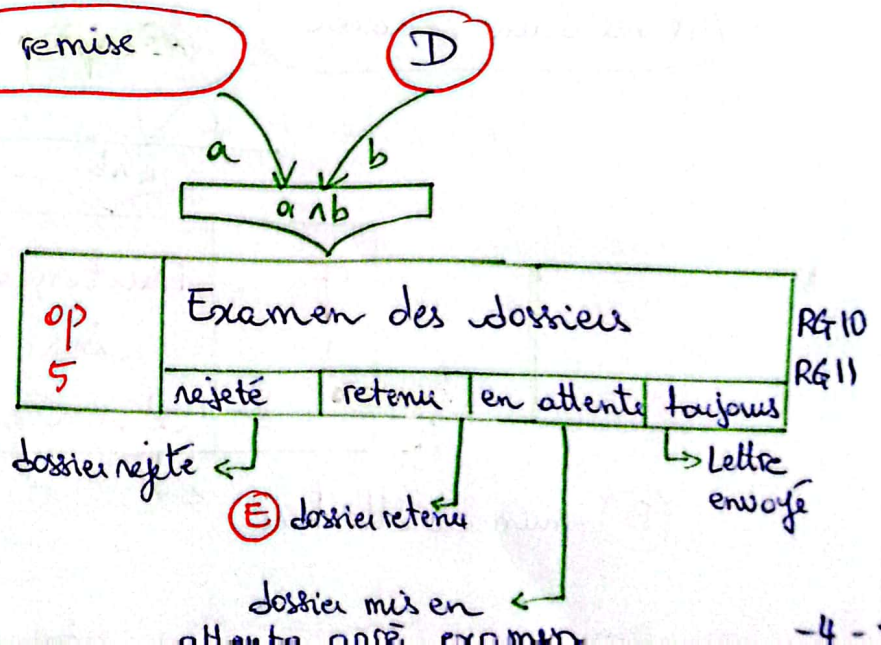 remise
D
a
b
a ∧ b
op
5
Examen des dossiers
RG10
RG11
rejeté
retenu
en attente
toujours
dossier rejeté
Lettre
envoyé
E dossier retenu
dossier mis en
attente après examen
-4-